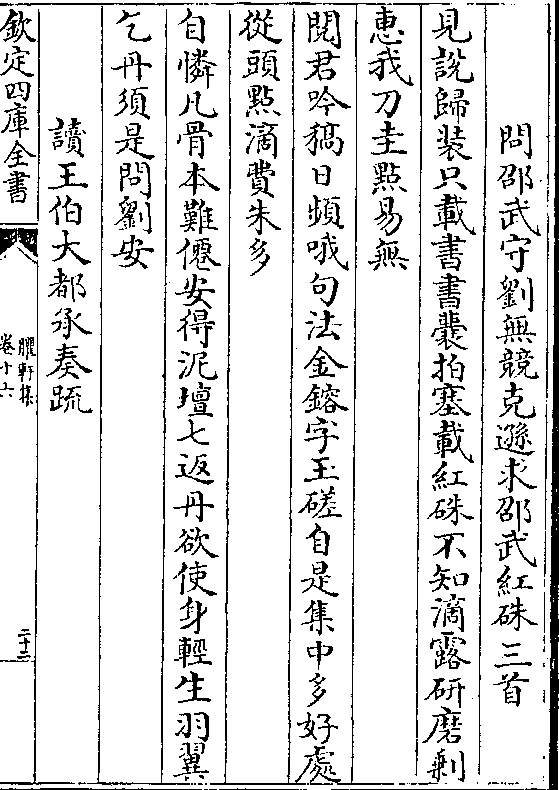 問邵武守劉無競克遜求邵武紅硃三首
見說歸装只載書書囊拍塞載紅硃不知滴露研磨剰
惠我刀圭㸃易無
閱君吟稿日頻哦句法金鎔字玉磋自是集中多好處
從頭㸃滴費朱多
自憐凡骨本難僊安得泥壇七返丹欲使身輕生羽翼
乞丹須是問劉安
讀王伯大都承奏疏
欽定四庫全書
臞軒集
卷十六
二十二